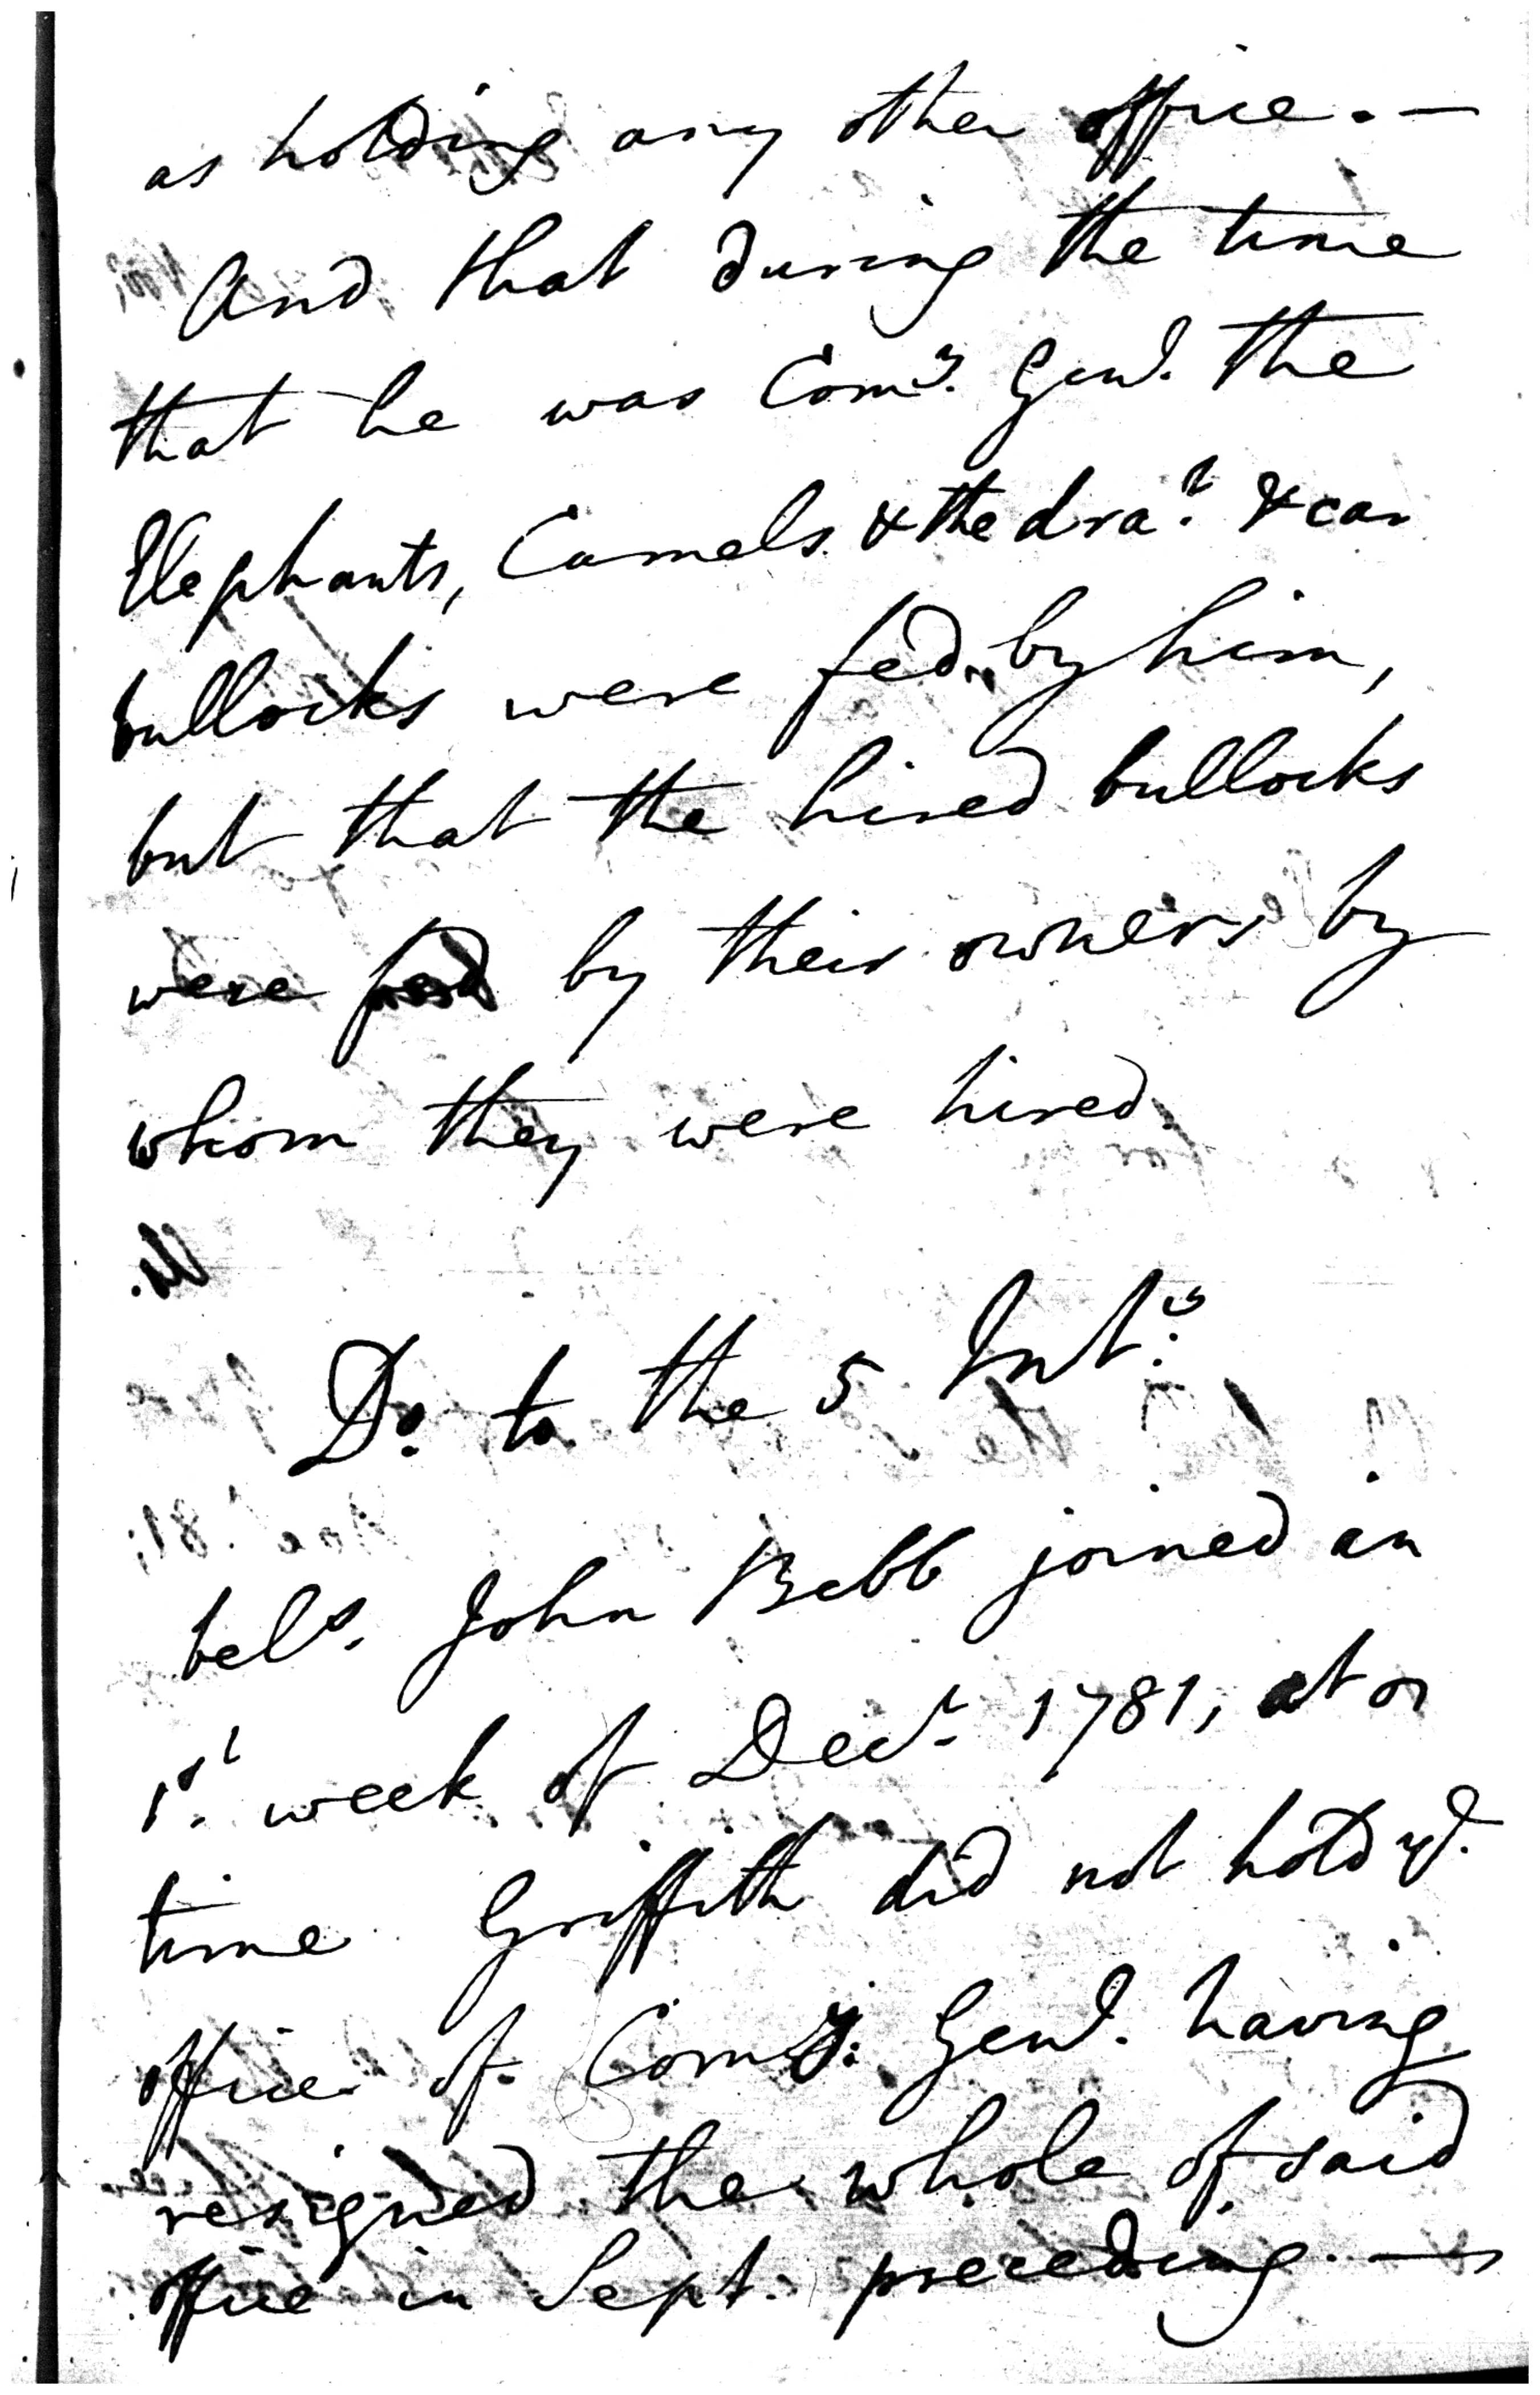 as holding any other office. —
And that during the time
that he was Comy. Genl. the
Elephants, Camels & the drat. & car
bullocks were fed by him,
but that the hired bullocks
were fed by their owners by
whom they were hired.
Do. to the 5 Inty.
bels. John Bebb joined in
1st. week of Decr. 1781, at or
time Griffith did not hold yd.
office of Comy. Genl. having
resigned the whole of said
office in Sept. preceding. —